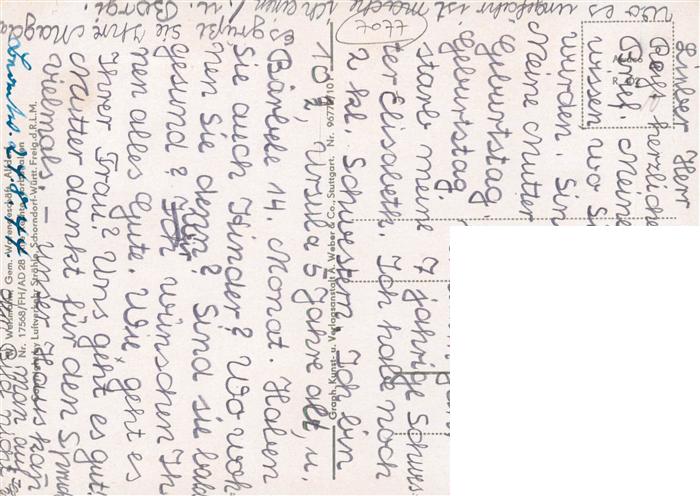 Lieber Herr
herzliche
Brief. Meine
wissen wo Si
wurden. Sin
Meine Mutter
Geburtstag.
Geburtstag
starb meine 7 jährige Schwes-
ter Elisabeth. Ich habe noch
2 kl. Schwestern. Ich bin
10 J, Ursula 5 Jahre alt, u.
Bärbele 14. Monat. Haben
Sie auch Kinder? Wo woh-
nen Sie denn? Sind sie bald
gesund? Ich wünschen Ih
nen alles Gute. Wie geht es
Ihrer Frau? Uns geht es gut.
Mutter dankt für den Spruch
vielmals. – Unser Haus kan
man auf
Bild nicht
Wo es ungefähr ist mache ich einen /
Es grüßt Sie Ihre Magda
u. Georg.
Graph. Kunst- u. Verlagsanstalt A. Weber & Co., Stuttgart. Nr. 9677 /10
Gem. Warengeschäft, Ald
Nr. 17568/FH/AD 28
Luftverkehr Strähle, Schorndorf-Württ. Freig. d. R.L.M.